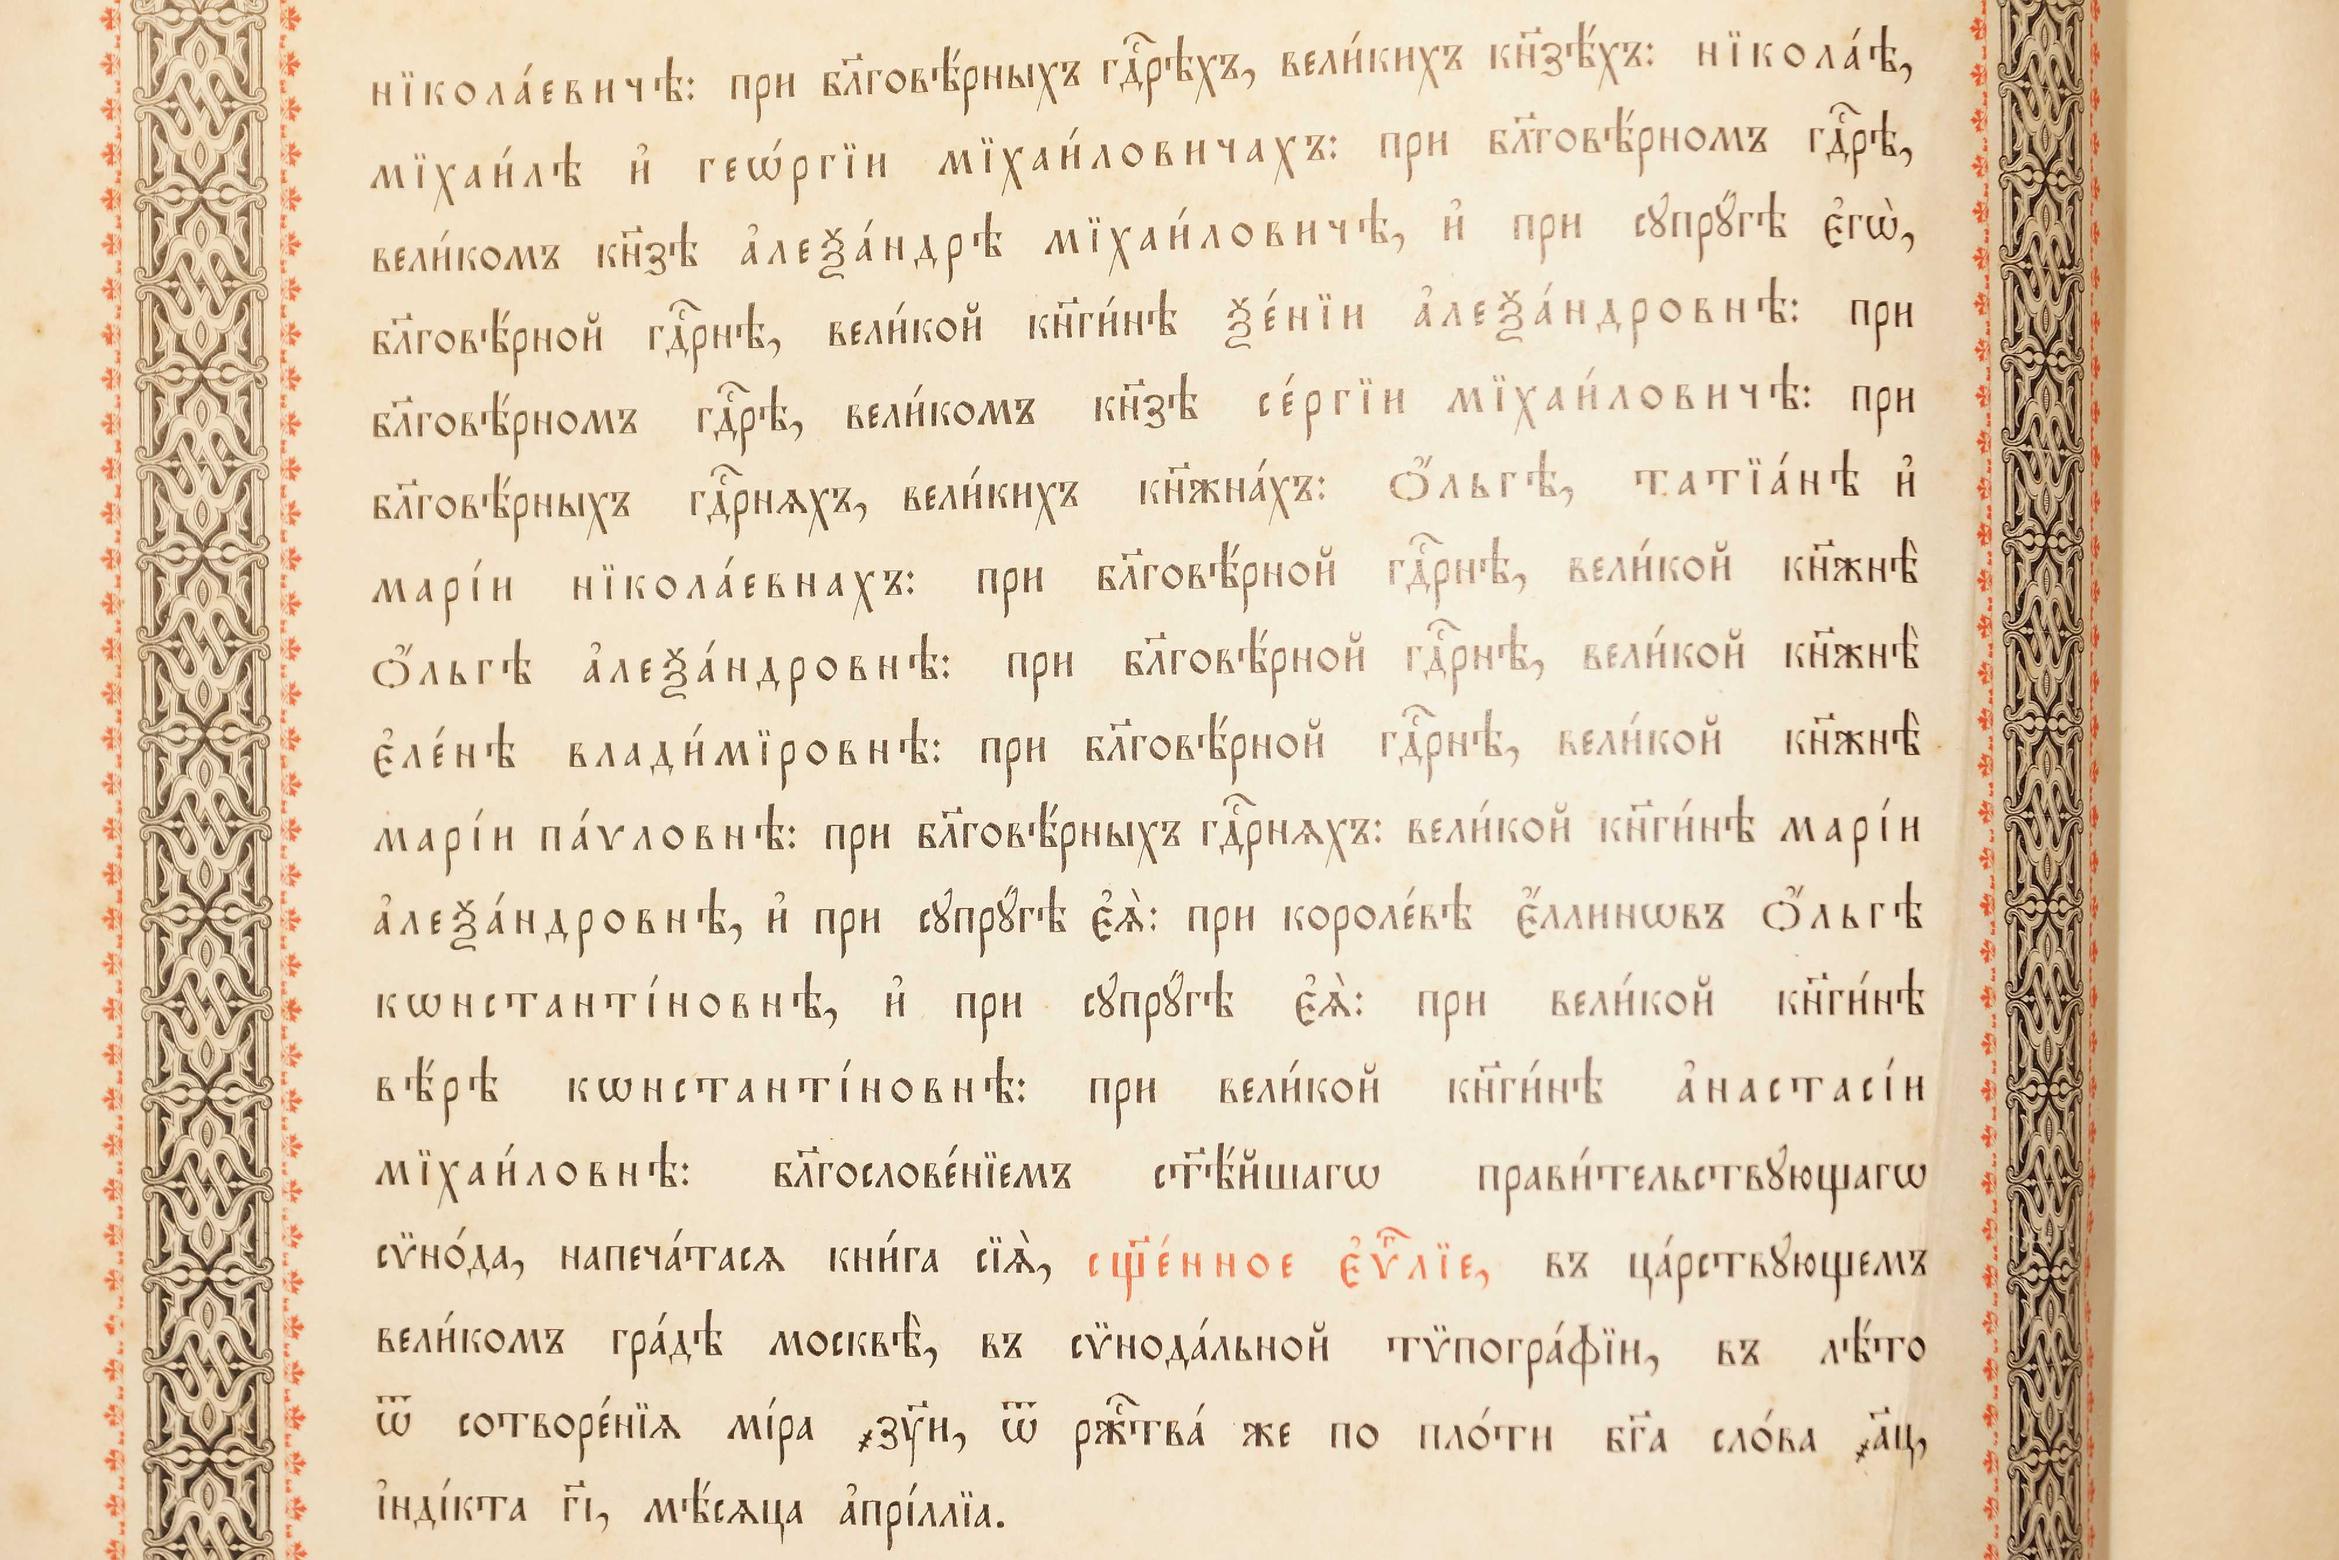 нїкола́евичѣ: при бл҃говѣ́рныхъ гдⷭ҇рѣхъ, вели́кихъ кн҃зѣ́хъ: нїкола́ѣ,
мїхаи́лѣ и҆ геѡ́ргїи мїхаи́ловичахъ: при бл҃говѣ́рномъ гдⷭ҇рѣ,
вели́комъ кн҃зѣ а҆леѯа́ндрѣ мїхаи́ловичѣ, и҆ при сꙋпрꙋ́гѣ є҆гѡ̀,
бл҃говѣ́рной гдⷭ҇рнѣ, вели́кой кн҃ги́нѣ ѯе́нїи а҆леѯа́ндровнѣ: при
бл҃говѣ́рномъ гдⷭ҇рѣ, вели́комъ кн҃зѣ се́ргїи мїхаи́ловичѣ: при
бл҃говѣ́рныхъ гдⷭ҇рнѧхъ, вели́кихъ кн҃жна́хъ: Ѻ҆́льгѣ, татїа́нѣ и҆
марі́и нїкола́евнахъ: при бл҃говѣ́рной гдⷭ҇рнѣ, вели́кой кн҃жнѣ̀
Ѻ҆́льгѣ а҆леѯа́ндровнѣ: при бл҃говѣ́рной гдⷭ҇рнѣ, вели́кой кн҃жнѣ̀
є҆ле́нѣ влади́мїровнѣ: при бл҃говѣ́рной гдⷭ҇рнѣ, вели́кой кн҃жнѣ̀
марі́и па́ѵловнѣ: при бл҃говѣ́рныхъ гдⷭ҇рнѧхъ: вели́кой кн҃ги́нѣ марі́и
а҆леѯа́ндровнѣ, и҆ при сꙋпрꙋ́гѣ є҆ѧ̀: при короле́вѣ є҆́ллинѡвъ Ѻ҆́льгѣ
кѡнстанті́новнѣ, и҆ при сꙋпрꙋ́гѣ є҆ѧ̀: при вели́кой кн҃ги́нѣ
вѣ́рѣ кѡнстанті́новнѣ: при вели́кой кн҃ги́нѣ а҆настасі́и
мїхаи́ловнѣ: бл҃гослове́нїемъ ст҃ѣ́йшагѡ прави́тельствꙋющагѡ
сѷно́да, напеча́тасѧ кни́га сїѧ̀, сщ҃е́нное є҆ѵⷢ҇лїе, въ ца́рствꙋющемъ
вели́комъ гра́дѣ москвѣ̀, въ сѷнода́льной тѷпогра́фїи, въ лѣ́то
ѿ сотворе́нїѧ мі́ра ҂зу҃и, ѿ рж҇тⷭ҇ва́ же по пло́ти бг҃а сло́ва ҂а҃ц,
і҆нді́кта г҃і, мѣ́сѧца а҆прі́ллїа.